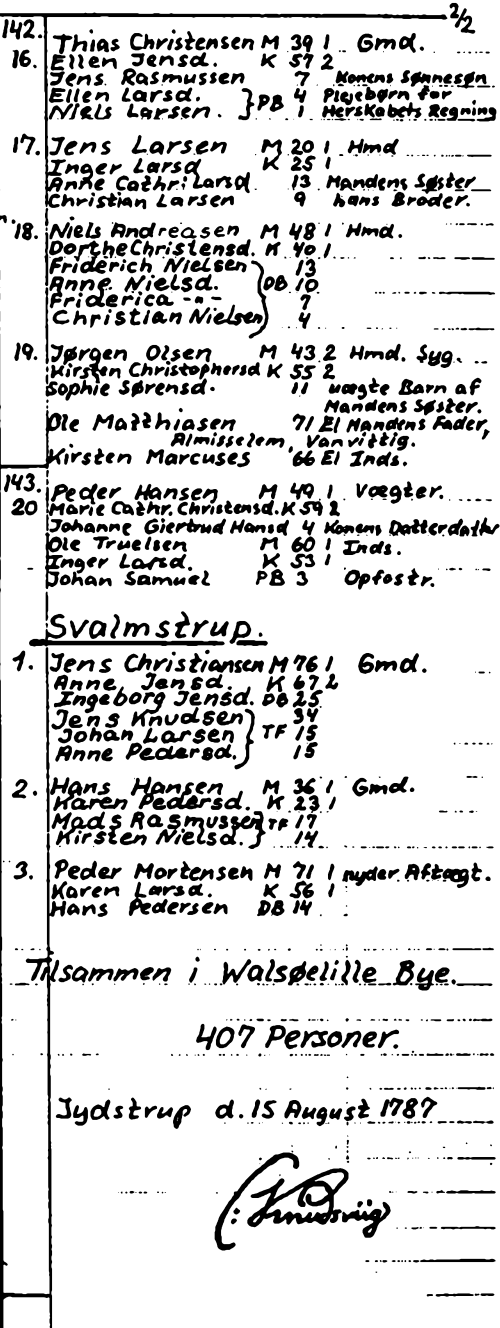 2/2
142.
16. Thias Christensen M 39 1 Gmd.
Ellen Jensd. K 57 2
Jens Rasmussen 7 Konens Sønnesøn
Ellen Larsd. } PB 4 Plejebørn for
Niels Larsen. 1 Herskabets Regning
17. Jens Larsen M 20 1 Hmd
Inger Larsd K 25 1
Anne Cathr: Larsd 13 Mandens Søster
Christian Larsen 9 hans Broder.
18. Niels Andreasen M 48 1 Hmd.
Dorthe Christensd. K 40 1
Friderich Nielsen 13
Anne Nielsd. } DB 10
Friderica -"- 7
Christian Nielsen 4
19. Jørgen Olsen M 43 2 Hmd. Syg.
Kirsten Christophersd K 55 2
Sophie Sørensd. 11 uægte Barn af
Mandens Søster.
Ole Matthiasen 71 El Mandens Fader,
Almisselem, Vanvittig.
Kirsten Marcuses 66 El Inds.
143.
20 Peder Hansen M 49 1 Vægter.
Marie Cathr. Christensd. K 59 2
Johanne Giertrud Hansd 4 Konens Datterdatter
Ole Truelsen M 60 1 Inds.
Inger Larsd. K 53 1
Johan Samuel PB 3 Opfostr.
Svalmstrup.
1. Jens Christiansen M 76 1 Gmd.
Anne Jensd. K 67 2
Ingeborg Jensd. DB 25
Jens Knudsen 34
Johan Larsen } TF 15
Anne Pedersd. 15
2. Hans Hansen M 36 1 Gmd.
Karen Pedersd. K 23 1
Mads Rasmussen } TF 17
Kirsten Nielsd. 14
3. Peder Mortensen M 71 1 nyder Aftægt.
Karen Larsd. K 56 1
Hans Pedersen DB 14
Tilsammen i Walsøelille Bye.
407 Personer.
Jydstrup d. 15 August 1787